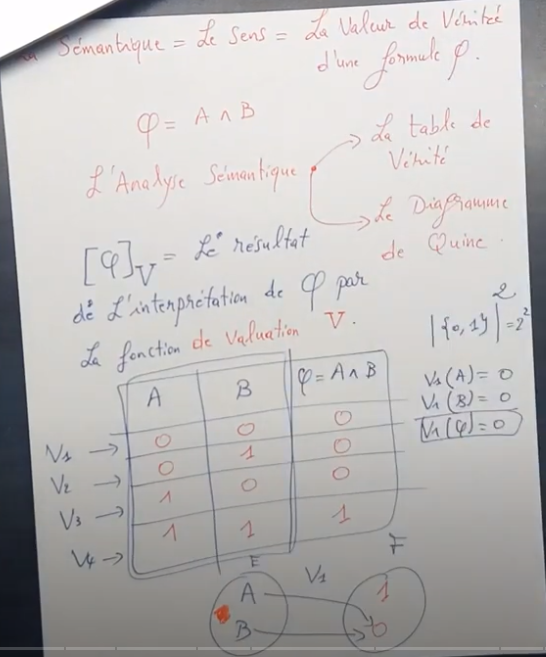 Sémantique = Le Sens = La Valeur de Vérité
d'une formule φ.
φ = A ∧ B
La table de
Vérité
L'Analyse Sémantique
Le Diagramme
de Quine.
[φ]V = Le résultat
de L'interprétation de φ par
La fonction de valuation V.
|{0,1}|² = 2²
A B φ = A ∧ B
V1 → 0 0 0
V2 → 0 1 0
V3 → 1 0 0
V4 → 1 1 1
V1(A) = 0
V1(B) = 0
V1(φ) = 0
E V1 F
A 1
B 0